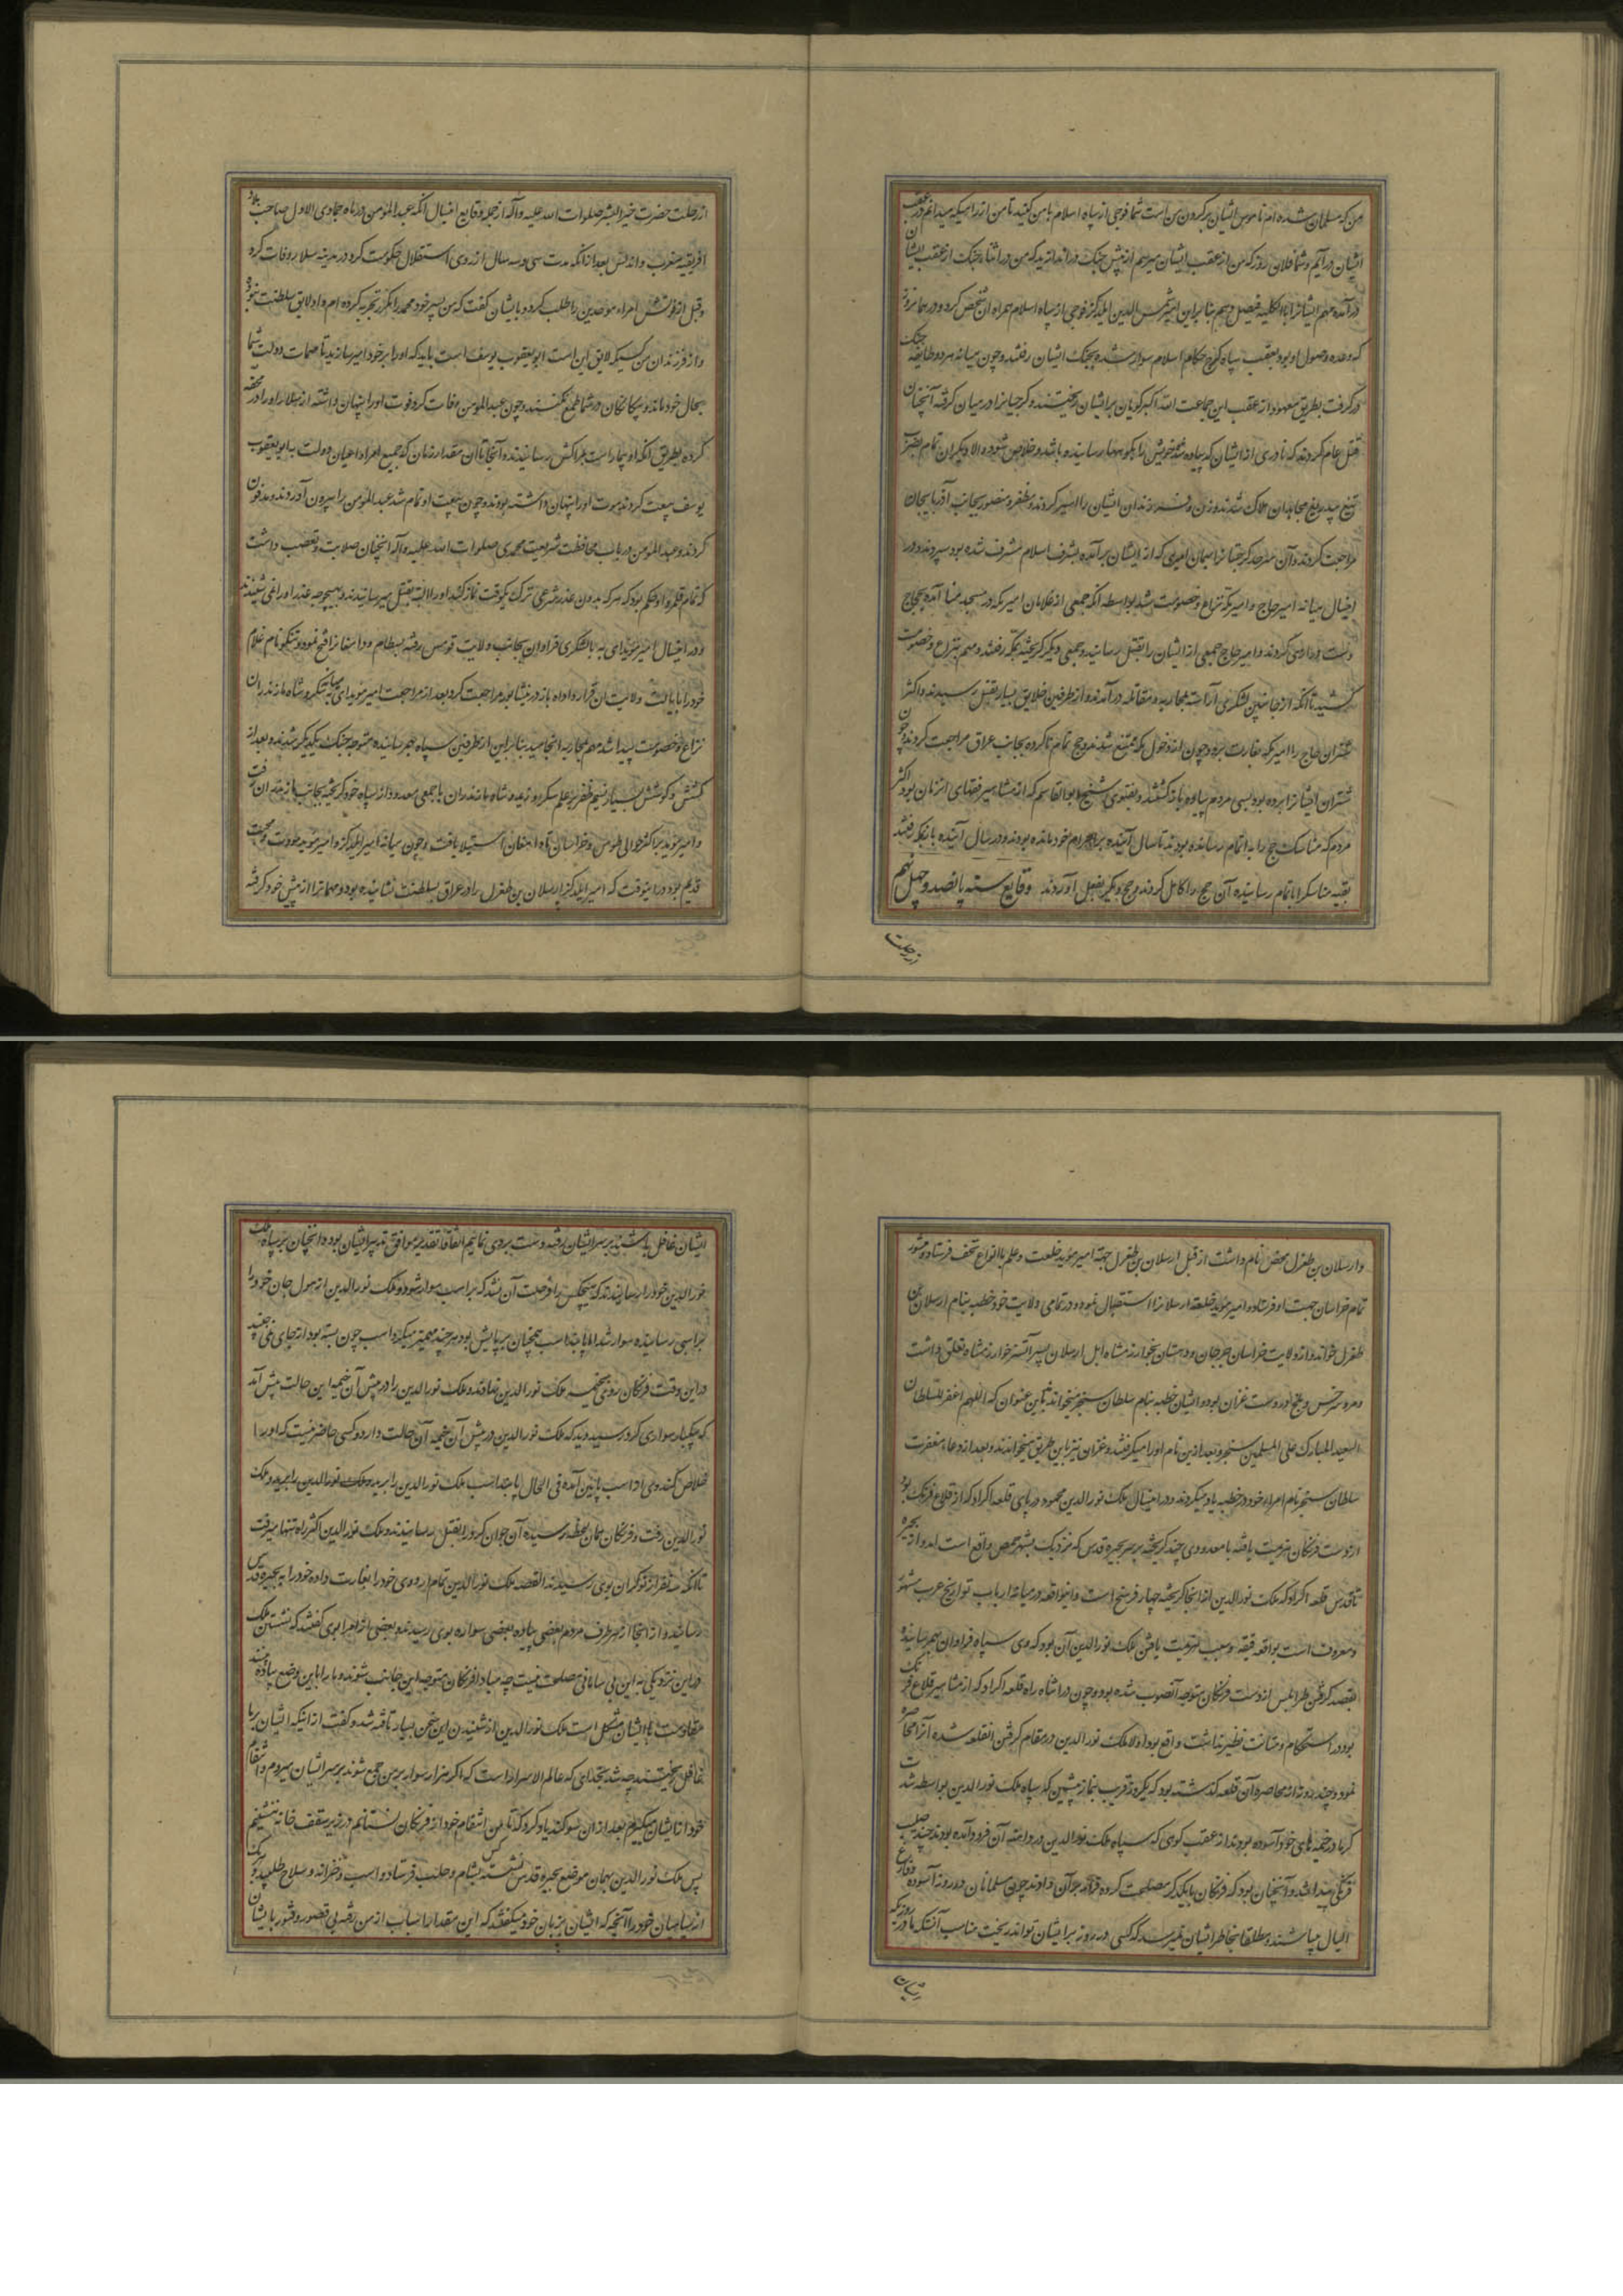 من که مسلمان شده ام ناموس ایشان بر گردن من است شما فوجی از سپاه اسلام با من کنید تا من از راهیکه میدانم در عقب
ایشان در آیم و شما فلان روز که من از عقب ایشان میرسم از پیش جنگ در اندازید که من در اثناء جنگ از عقب ایشان
در آمده مهم ایشانرا بالکلیه فیصل دهم بنا برین امیر شمس الدین ایلدگز فوجی از سپاه اسلام همراه آن شخص کرد و در همانروز
که وعده وصول او بود بعقب سپاه گرج حکام اسلام سوار شده بجنگ ایشان رفتند و چون میانه هر دو طایفه جنگ
در گرفت بطریق معهود از عقب این جماعت الله اکبر گویان بر ایشان ریختند و گرجیانرا در میان گرفته آنچنان
قتل عام کردند که نادری از ایشان که پیاده شده خویش را بکوهها رسانیده باشد خلاص شود و الا دیگران تمام بضرب
تیغ بیدریغ مجاهدان هلاک شدند و زن و فرزندان ایشان را اسیر کردند و مظفر و منصور بجانب آذربایجان
مراجعت کردند و آن سرحد گرجستانرا بهمان امیری که از ایشان بر آمده بشرف اسلام مشرف شده بود سپردند و در
اینسال میانه امیر حاج و امیر مکه نزاع و خصومت شد بواسطه آنکه جمعی از غلامان امیر مکه در مسجد منا آمده بحجاج
دست درازی کردند و امیر حاج جمعی از ایشان را بقتل رسانید و جمعی دیگر گریخته بمکه رفتند و مهم بنزاع و خصومت
کشید تا آنکه از جانبین لشکری آراسته بمحاربه و مقاتله در آمدند و از طرفین خلایق بسیار بقتل رسیدند و اکثر
شتران حاج را امیر مکه بغارت برد و چون از دخول مکه ممتنع شدند حج تمام ناکرده بجانب عراق مراجعت کردند و چون
شتران ایشانرا برده بود بسی مردم پیاده باز گشتند و بفتوی شیخ ابوالقاسم که از مشاهیر فقهای آنزمان بود اکثر
مردم که مناسک حج را به اتمام رسانده بودند تا سال آینده بر احرام خود مانده بودند و در سال آینده بازبمکه رفتند
بقیه مناسکرا باتمام رسانیده آن حج را کامل کردند و حج دیگر بفعل آوردند وقایع سنه پانصد و چهل نهم
از رحلت
از رحلت حضرت خیر البشر صلوات الله علیه و آله از جمله وقایع اینسال آنکه عبد المؤمن در ماه جمادی الاول صاحب بلاد
افریقیه و مغرب و اندلس بعد از آنکه مدت سی و سه سال از روی استقلال حکومت کرد در مدینه سلا بر وفات کرد
و قبل از فوتش امراء موحدین را طلب کرد و بایشان گفت که من پسر خود محمد را مکرر تجربه کرده ام و او لایق سلطنت نبوده
و از فرزندان من کسیکه لایق این است ابو یعقوب یوسف است باید که او را بر خود امیر سازید تا مهمات دولت شما
بحال خود ماند و بیگانگان در شما طمع نکنند و چون عبد المؤمن وفات کرد فوت او را پنهان داشته از سلا او را در محفه
کرده بطریق آنکه او بیمار است بمراکش رسانیدند و آنجا تا آن مقدار زمان که جمیع امراء و اعیان دولت به ابو یعقوب
یوسف بیعت کردند موت او را پنهان داشته بودند و چون بیعت او تمام شد عبد المؤمن را بیرون آوردند و مدفون
کردند و عبد المؤمن در باب محافظت شریعت محمدی صلوات الله علیه و آله آنچنان صلابت و تعصب داشت
که تمام قلمرو او حکم بود که هر که بدون عذر شرعی ترک یکوقت نماز کند او را البته بقتل میرسانیدند و بهیچوجه عذر او را نمی شنیدند
و در اینسال امیر مؤید ای به با لشکری فراوان بجانب ولایت قومس رفته بسطام و دامغانرا فتح نمود و تنکز نام غلام
خود را بایالت ولایت آن قرار داد و باز در نیشابور مراجعت کرد بعد از مراجعت امیر مؤید ای به میانه تنکز و شاه مازندران
نزاع و خصومت پیدا شد مهم بمحاربه انجامید بنا برین از طرفین سپاه بهم رسانیده متوجه جنگ یکدیگر شدند و بعد از
کشش و کوشش بسیار نسیم ظفر بر علم تنکز وزید و شاه مازندران با جمعی معدود از سپاه خود گریخته بجانب مازندران رفت
و امیر مؤید بر اکثر حوالی طوس و خراسان تا دامغان استیلا یافت و چون میانه امیر ایلدگز و امیر مؤید مودت و محبت
قدیم بود در اینوقت که امیر ایلدگز ارسلان بن طغرل را در عراق بسلطنت نشانیده بود و مهماترا از پیش خود گرفته
و ارسلان بن طغرل محض نام داشت از قبل ارسلان بن طغرل جهة امیر مؤید خلعت و علم با انواع تحف فرستاد و منشور
تمام خراسان جهت او فرستاد و امیر مؤید خلعت ارسلانرا استقبال نمود و در تمامی ولایت خود خطبه بنام ارسلان بن
طغرل خواند و از ولایت خراسان جرجان و دهستان بخوارزمشاه ایل ارسلان پسر آتسز خوارزمشاه تعلق داشت
و مرو و سرخس و بلخ در دست غزان بود و ایشان خطبه بنام سلطان سنجر میخواندند باین عنوان که اللهم اغفر للسلطان
السعید المبارک علی المسلمین سنجر و بعد ازین نام او را میگرفتند و غزان نیز باین طریق میخواندند و بعد از دعاء مغفرت
سلطان سنجر نام امراء خود در خطبه یاد میکردند و در اینسال ملک نور الدین محمود در پای قلعه اکراد که از قلاع فرنگ بود
از دست فرنگان هزیمت یافته با معدودی چند گریخته بر سر بحیره قدس که نزدیک بشهر حمص واقع است آمد و از بحیره
تا قدس قلعه اکراد که ملک نور الدین از آنجا گریخته چهار فرسخ است و اینواقعه در میانه ارباب تواریخ عرب مشهور
و معروف است بواقعه فقیه و سبب هزیمت یافتن ملک نور الدین آن بود که وی سپاه فراوان بهم رسانیده
بقصد گرفتن طرابلس از دست فرنگان متوجه آنصوب شده بود و چون در اثناء راه قلعه اکراد که از مشاهیر قلاع فرنگ
بود و در استحکام و متانت نظیر نداشت واقع بود اولا ملک نور الدین در مقام گرفتن آنقلعه شده آنرا محاصره
نمود و چند روز از محاصره آن قلعه گذشته بود که یکروز قریب بنماز پیشین که سپاه ملک نور الدین بواسطه شدت
گرما در خیمه های خود آسوده بودند از عقب کوهی که سپاه ملک نور الدین در دامنه آن فرود آمده بودند چند صلیب
فرنگی پیدا شد و آنچنان بود که فرنگان با یکدیگر مصلحت کرده قرار بر آن دادند چون مسلمانان در روز آسوده و فارغ
البال میباشند و مطلقا بخاطر ایشان نمیرسد که کسی در روز بر ایشان تواند ریخت مناسب آنست که ما در روز که
ایشان
ایشان غافل باشند بر سر ایشان رفته دست بردی نماییم اتفاقا تقدیر موافق تدبیر ایشان بود و آنچنان بر سپاه ملک
نور الدین خود را رسانیدند که هیچکس را فرصت آن نشد که بر اسب سوار شود و ملک نور الدین از هول جان خود را
بر اسبی رسانیده سوار شد اما پابند اسب همچنان بر پایش بود هر چند مهمیز میکرد اسب چون بسته بود از جای نمی جنبید
در این وقت فرنگان روی بخیمه ملک نور الدین نهادند و ملک نور الدین را در پیش آن خیمه این حالت پیش آمد
که یکبار سواری کرد رسید و دید که ملک نور الدین در پیش آن خیمه آن حالت دارد و کسی حاضر نیست که او را
خلاص کند وی از اسب پایین آمده فی الحال پابند اسب ملک نور الدین را برید و ملک
نور الدین رفت و فرنگان همان لحظه رسیده آن جوان کرد را بقتل رسانیدند و ملک نور الدین اکثر راه تنها میرفت
تا آنکه سه نفر از نوکران بوی رسیدند القصه ملک نور الدین تمام اردوی خود را بغارت داده خود را به بحیره قدس
رسانید و از آنجا از هر طرف مردم بعضی پیاده بعضی سواره بوی رسیدند و بعضی از امراء بوی گفتند که نشستن ملک
در این نزدیکی به این بی سامانی مصلحت نیست چه مبادا فرنگان متوجه این جانب شوند و ما را باین وضع پیاده
مقاومت با ایشان مشکل است ملک نور الدین از شنیدن این سخن بسیار تافته شد و گفت از اینکه ایشان بر ما
غافل ریختند چه شد بخدایی که عالم الاسرار است که اگر هزار سوار بر من جمع شوند بر سر ایشان میروم و انتقام
خود از ایشان میگیرم بعد از آن سوگند یاد کرد که تا من انتقام خود از فرنگان نستانم در زیر سقف خانه ننشینم
پس ملک نور الدین بهمان موضع بحیره قدس نشسته کس بشام و حلب فرستاد و اسب و خزانه و سلاح طلبید و هر یک
از سپاهیان خود را آنچه که ایشان بزبان خود میگفتند که این مقدار اسباب از من رفته بی قصور و فتور بایشان